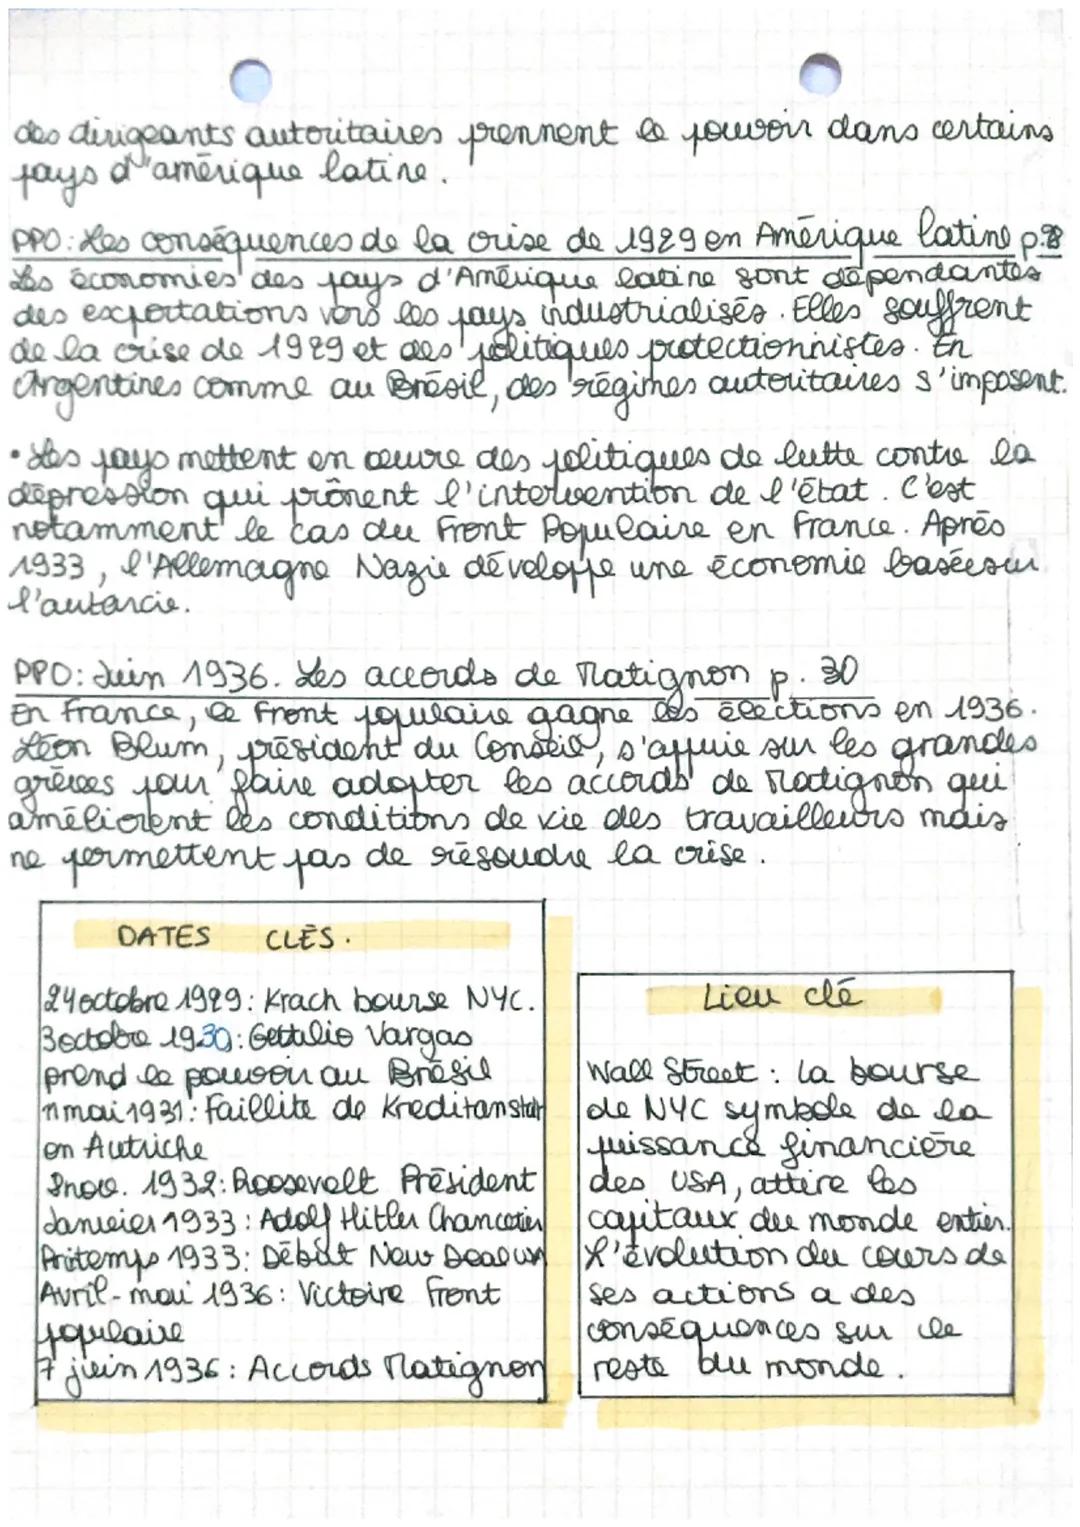 des dirigeants autoritaires prennent le pouvoir dans certains
pays d'amérique latine.
PPO: Les conséquences de la crise de 1929 en Amérique latine p.28
Les économies des pays d'Amérique latine sont dépendantes
des exportations vers les pays industrialisés. Elles souffrent
de la crise de 1929 et des politiques protectionnistes. En
Argentines comme au Brésil, des régimes autoritaires s'imposent.
• Les pays mettent en œuvre des politiques de lutte contre la
dépression qui prônent l'intervention de l'état. C'est
notamment le cas du Front Populaire en France. Après
1933, l'Allemagne Nazie développe une économie basée sur
l'autarcie.
PPO: Juin 1936. Les accords de Matignon p. 30
En France, le Front populaire gagne les élections en 1936.
Léon Blum, président du Conseil, s'appuie sur les grandes
grèves pour faire adopter les accords de Matignon qui
améliorent les conditions de vie des travailleurs mais
ne permettent pas de résoudre la crise.
DATES CLÉS.
24 octobre 1929: Krach bourse NYC.
3 octobre 1930: Gettulio Vargas
prend le pouvoir au Brésil
11 mai 1931: Faillite de Kreditanstalt
en Autriche
8 nov. 1932: Roosevelt Président
Janvier 1933: Adolf Hitler Chancelier
Printemps 1933: Début New Deal
Avril-mai 1936: Victoire Front
populaire
7 juin 1936: Accords Matignon
Lieu clé
Wall Street: la bourse
de NYC symbole de la
puissance financière
des USA, attire les
capitaux du monde entier.
L'évolution du cours de
ses actions a des
conséquences sur le
reste du monde.